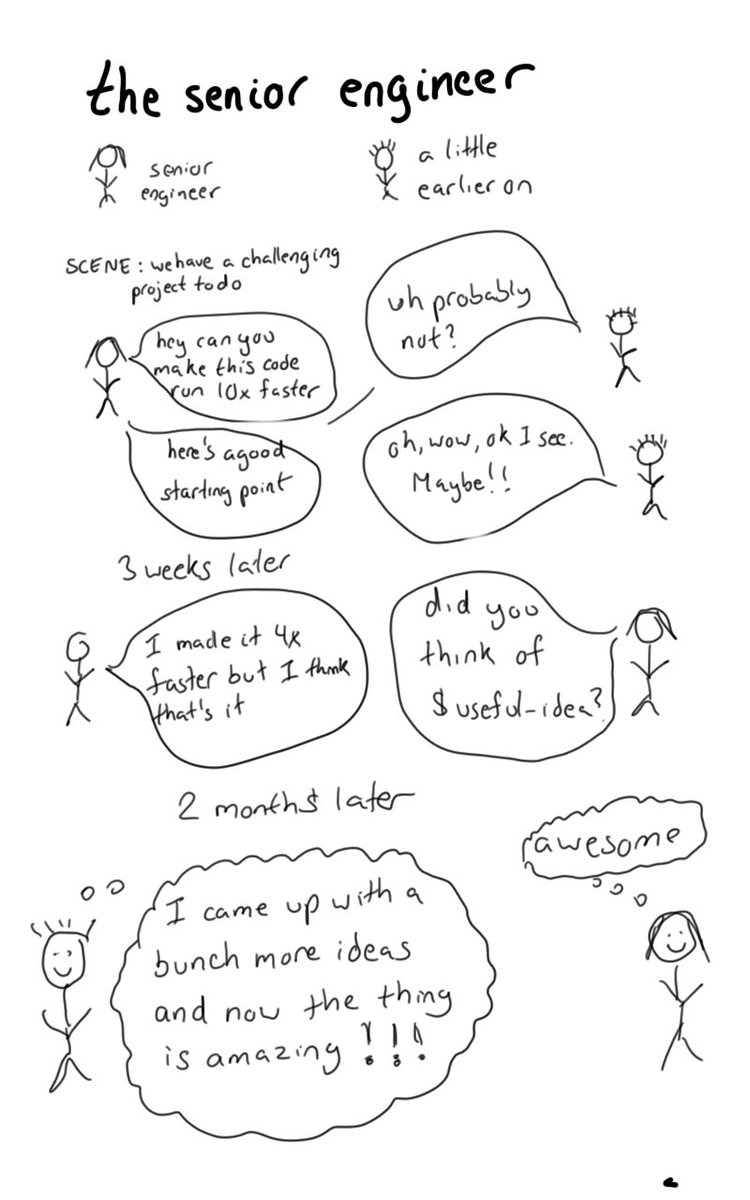 the senior engineer
senior
engineer
a little
earlier on
SCENE: we have a challenging
project to do
hey can you
make this code
run 10x faster
uh probably
not?
here's a good
starting point
oh, wow, ok I see.
Maybe!!
3 weeks later
I made it 4x
faster but I think
that's it
did you
think of
$useful-idea?
2 months later
I came up with a
bunch more ideas
and now the thing
is amazing !!!
awesome